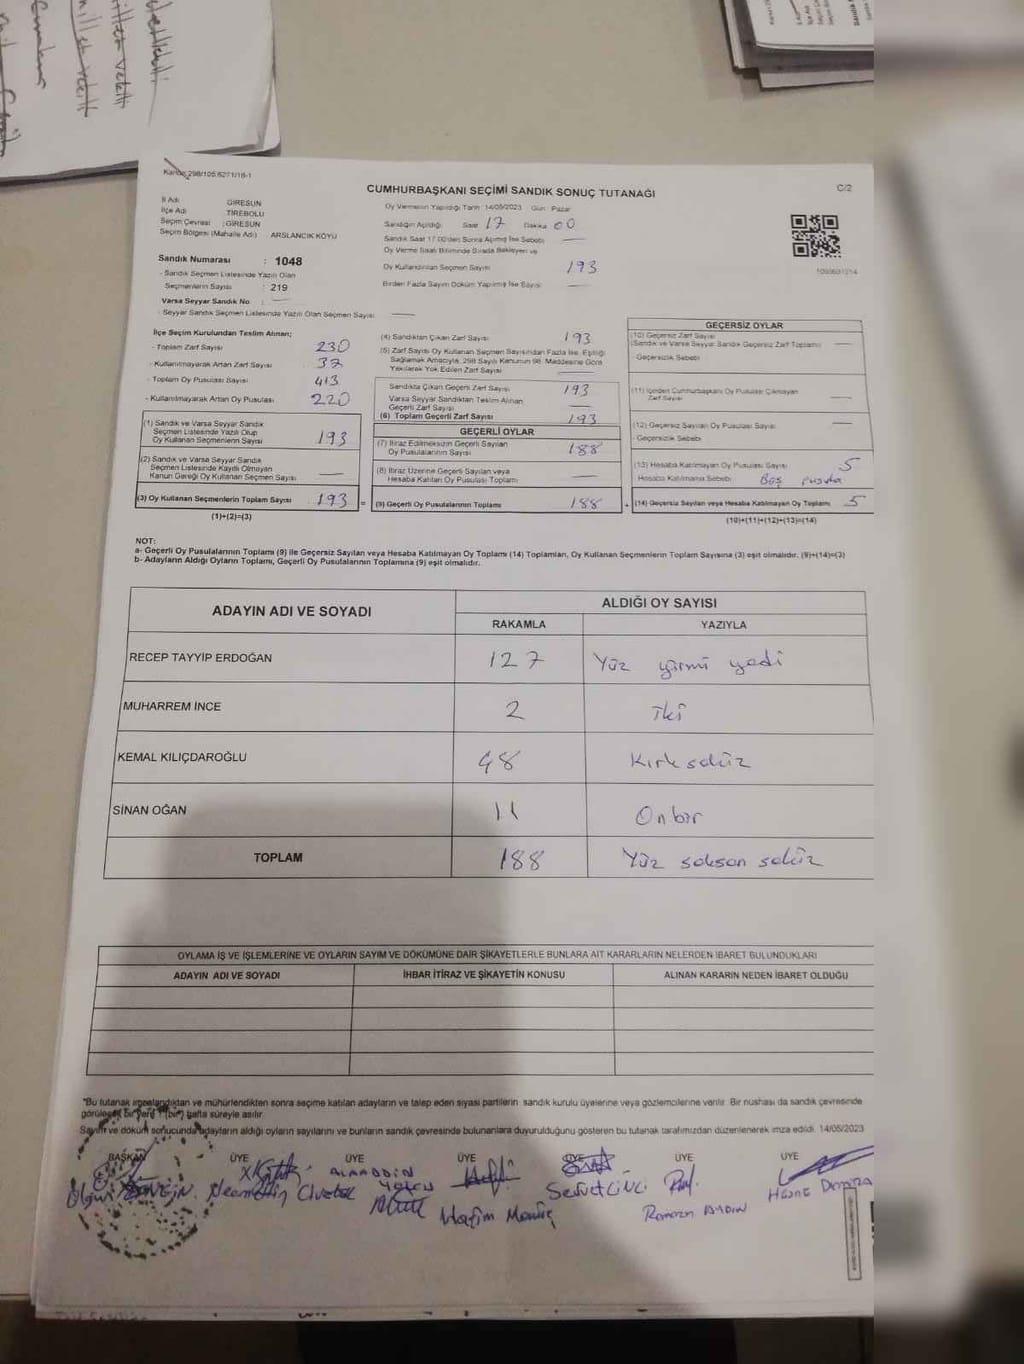 Kanun 298/105,6271/18-1
CUMHURBAŞKANI SEÇİMİ SANDIK SONUÇ TUTANAĞI
C/2
İl Adı : GİRESUN
İlçe Adı : TİREBOLU
Seçim Çevresi : GİRESUN
Seçim Bölgesi (Mahalle Adı) : ARSLANCIK KÖYÜ
Oy Vermenin Yapıldığı Tarih : 14/05/2023 Gün : Pazar
Sandığın Açıldığı Saat 17 Dakika 00
Sandık Saat 17:00'den Sonra Açılmış İse Sebebi —
Oy Verme Saati Bitiminde Sırada Bekleyen ve
Oy Kullandırılan Seçmen Sayısı 193
Birden Fazla Sayım Döküm Yapılmış İse Sayısı —
Sandık Numarası : 1048
- Sandık Seçmen Listesinde Yazılı Olan
Seçmenlerin Sayısı : 219
Varsa Seyyar Sandık No : —
- Seyyar Sandık Seçmen Listesinde Yazılı Olan Seçmen Sayısı : —
İlçe Seçim Kurulundan Teslim Alınan;
- Toplam Zarf Sayısı 230
- Kullanılmayarak Artan Zarf Sayısı 37
- Toplam Oy Pusulası Sayısı 413
- Kullanılmayarak Artan Oy Pusulası 220
(1) Sandık ve Varsa Seyyar Sandık
Seçmen Listesinde Yazılı Olup
Oy Kullanan Seçmenlerin Sayısı 193
(2) Sandık ve Varsa Seyyar Sandık
Seçmen Listesinde Kayıtlı Olmayan
Kanun Gereği Oy Kullanan Seçmen Sayısı —
(3) Oy Kullanan Seçmenlerin Toplam Sayısı 193
(1)+(2)=(3)
(4) Sandıktan Çıkan Zarf Sayısı 193
(5) Zarf Sayısı Oy Kullanan Seçmen Sayısından Fazla İse, Eşitliği
Sağlamak Amacıyla, 298 Sayılı Kanunun 98. Maddesine Göre
Yakılarak Yok Edilen Zarf Sayısı —
Sandıkta Çıkan Geçerli Zarf Sayısı 193
Varsa Seyyar Sandıktan Teslim Alınan
Geçerli Zarf Sayısı —
(6) Toplam Geçerli Zarf Sayısı 193
GEÇERLİ OYLAR
(7) İtiraz Edilmeksizin Geçerli Sayılan
Oy Pusulalarının Sayısı 188
(8) İtiraz Üzerine Geçerli Sayılan veya
Hesaba Katılan Oy Pusulaları Toplamı —
(9) Geçerli Oy Pusulalarının Toplamı 188
GEÇERSİZ OYLAR
(10) Geçersiz Zarf Sayısı
(Sandık ve Varsa Seyyar Sandık Geçersiz Zarf Toplamı) —
- Geçersizlik Sebebi
(11) İçinden Cumhurbaşkanı Oy Pusulası Çıkmayan
Zarf Sayısı —
(12) Geçersiz Sayılan Oy Pusulası Sayısı —
- Geçersizlik Sebebi
(13) Hesaba Katılmayan Oy Pusulası Sayısı 5
Hesaba Katılmama Sebebi Boş pusula
(14) Geçersiz Sayılan veya Hesaba Katılmayan Oy Toplamı 5
(10)+(11)+(12)+(13)=(14)
NOT:
a- Geçerli Oy Pusulalarının Toplamı (9) ile Geçersiz Sayılan veya Hesaba Katılmayan Oy Toplamı (14) Toplamları, Oy Kullanan Seçmenlerin Toplam Sayısına (3) eşit olmalıdır. (9)+(14)=(3)
b- Adayların Aldığı Oyların Toplamı, Geçerli Oy Pusulalarının Toplamına (9) eşit olmalıdır.
ADAYIN ADI VE SOYADI
ALDIĞI OY SAYISI
RAKAMLA YAZIYLA
RECEP TAYYİP ERDOĞAN 127 Yüz yirmi yedi
MUHARREM İNCE 2 iki
KEMAL KILIÇDAROĞLU 48 Kırk sekiz
SİNAN OĞAN 11 On bir
TOPLAM 188 Yüz seksen sekiz
OYLAMA İŞ VE İŞLEMLERİNE VE OYLARIN SAYIM VE DÖKÜMÜNE DAİR ŞİKAYETLERLE BUNLARA AİT KARARLARIN NELERDEN İBARET BULUNDUKLARI
ADAYIN ADI VE SOYADI İHBAR İTİRAZ VE ŞİKAYETİN KONUSU ALINAN KARARIN NEDEN İBARET OLDUĞU
"Bu tutanak imzalandıktan ve mühürlendikten sonra seçime katılan adayların ve talep eden siyasi partilerin sandık kurulu üyelerine veya gözlemcilerine verilir. Bir nüshası da sandık çevresinde
görülecek bir yere 1 (bir) hafta süreyle asılır.
Sayım ve döküm sonucunda adayların aldığı oyların sayılarını ve bunların sandık çevresinde bulunanlara duyurulduğunu gösteren bu tutanak tarafımızdan düzenlenerek imza edildi. 14/05/2023
BAŞKAN ÜYE ÜYE ÜYE ÜYE ÜYE ÜYE
ALAADDİN
Ramazan AYDIN